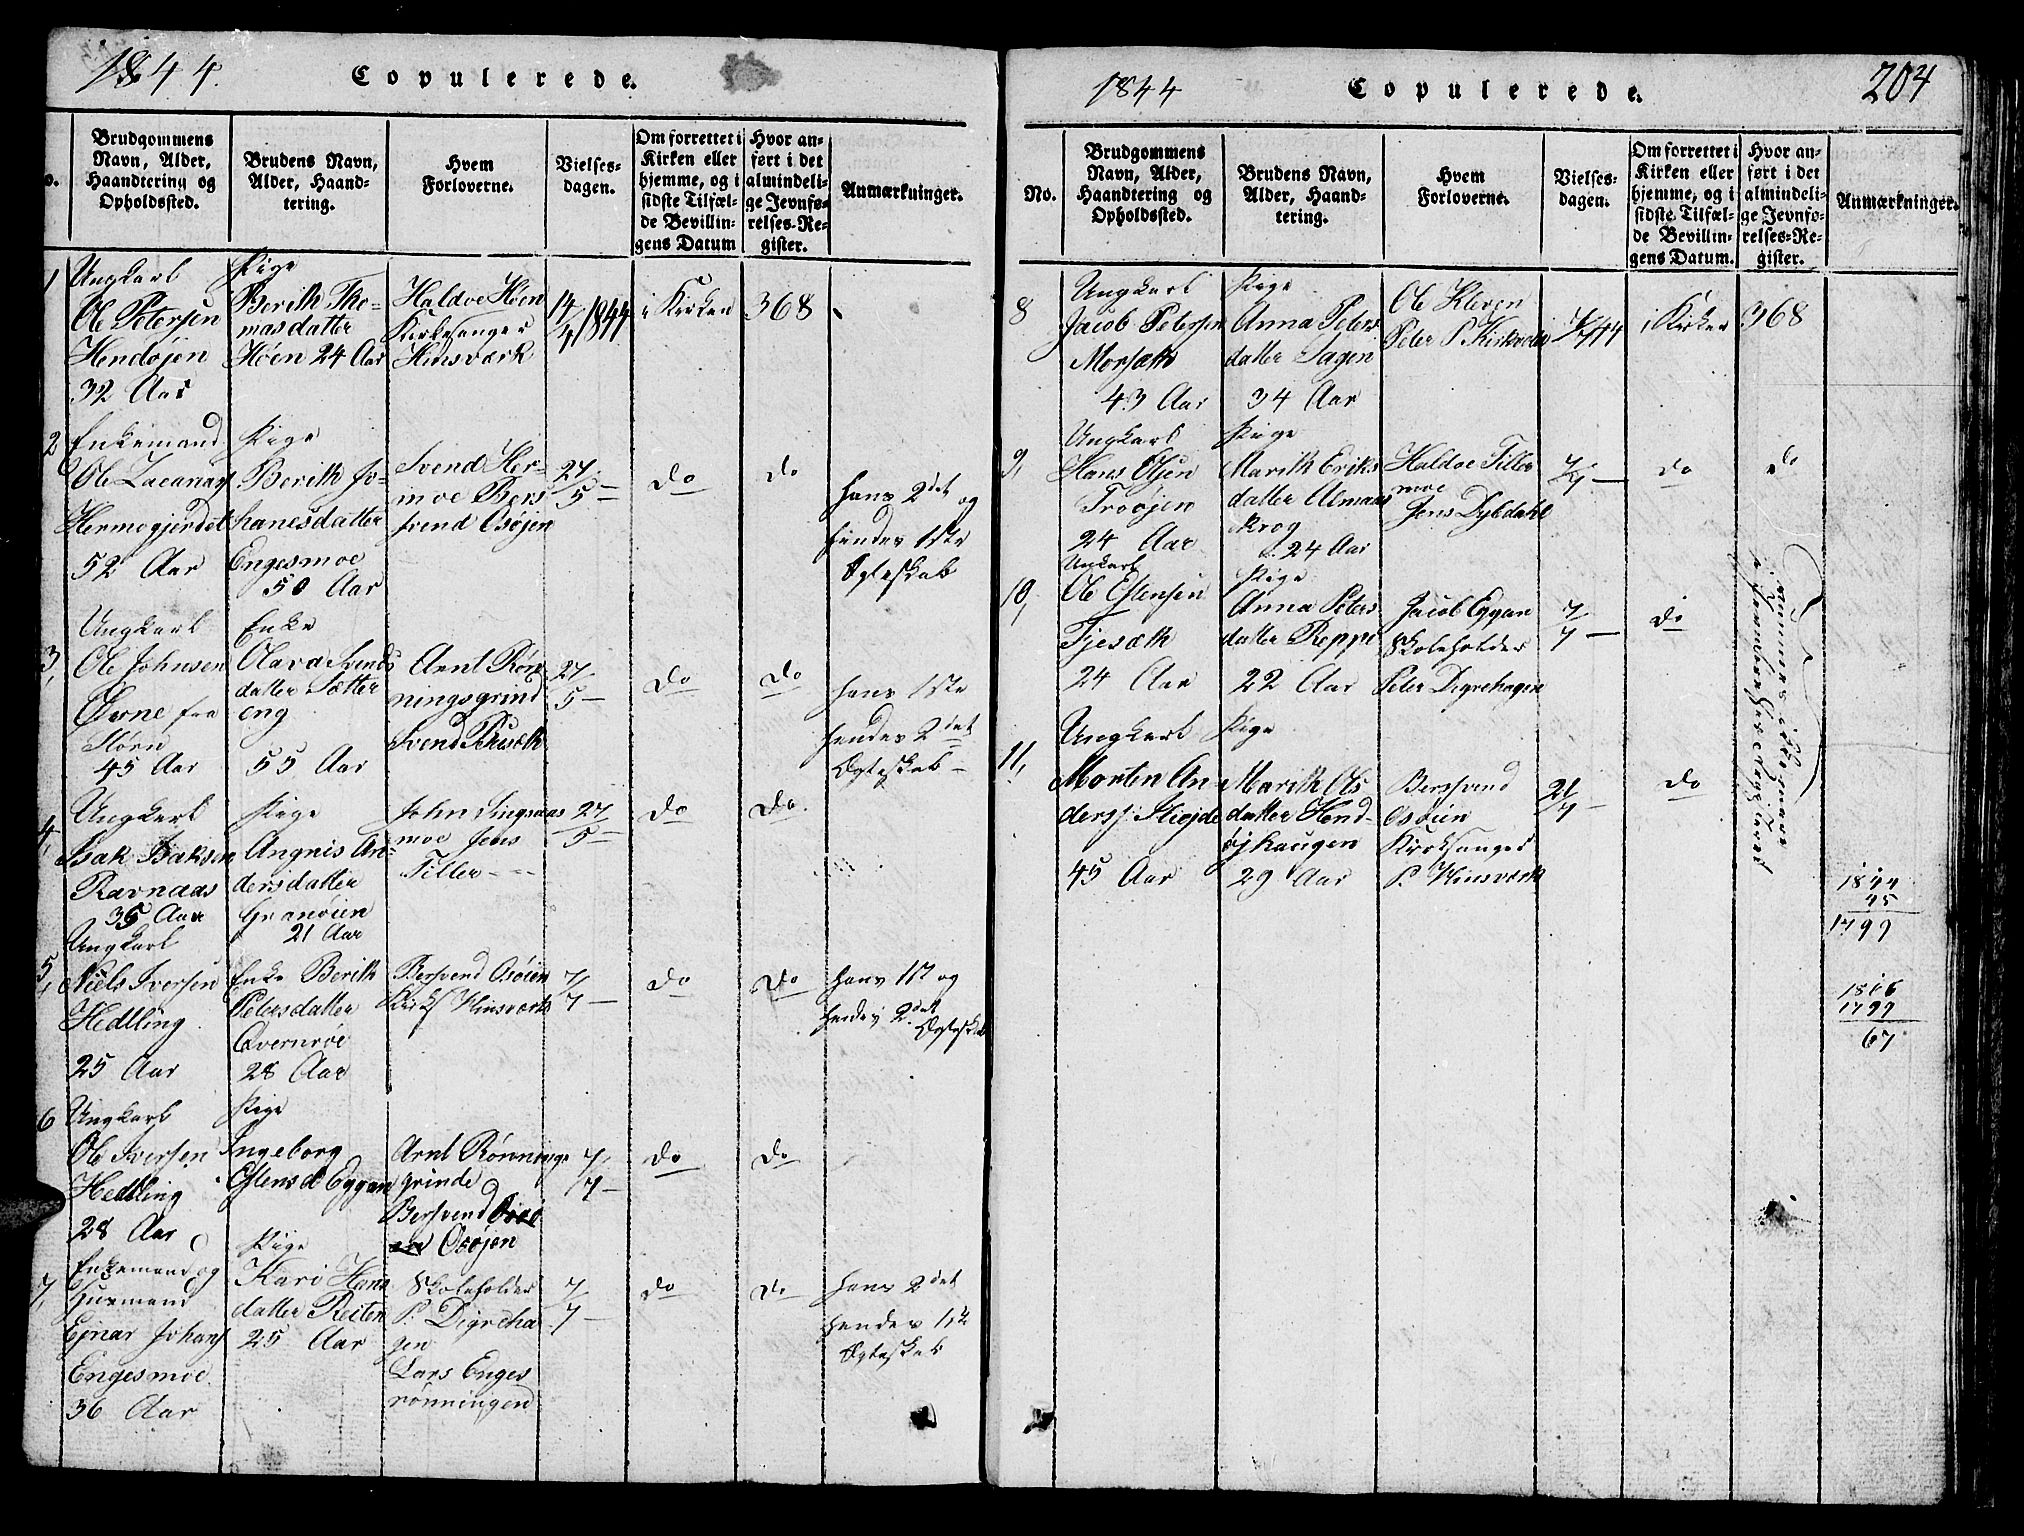 1844.
Copulerede.
o.
Brudgommens
Navn, Alder,
Haandtering og
Opholdssted.
Brudens Navn,
Alder, Haand-
tering.
Hvem
Forloverne.
Vielses-
dagen.
Om forrettet i
Kirken eller
hjemme, og i
sidste Tilfæl-
de Bevillin-
gens Datum
Hvor an-
ført i det
almindeli-
ge Jevnfø-
relses-Re-
gister.
Anmærkninger.
1
Ungkarl
Ole Petersen
Hendøjen
32 Aar
Pige
Berith Tho-
masdatter
Høen 24 Aar
Haldoe Høen
Kirkesanger
Hinsværk
14/4 1844.
i Kirken
368
2
Enkemand
Ole Zacarias
Hermogjerdet
52 Aar
Pige
Berith Jo-
hanesdatter
Engesmoe
50 Aar
Svend Her-
moe Bers
svend Osøjen
27/5 —
do
do
hans 2det og
hendes 1ste
Ægteskab
3,
Ungkarl
Ole Johnsen
Øerne fra
Støren
45 Aar
Enke
Olava Svends
datter Sætter
eng
55 Aar
Arnt Røn
ningsgrind
Svend Presæth
27/5 —
do
do
hans 1ste
hendes 2det
Ægteskab —
4,
Ungkarl
Isak Isaksen
Ravnaas
35 Aar
Pige
Angnis An-
dersdatter
Granøien
21 Aar
John Singsaas
moe Jens
Tiller - - -
27/5 —
do
do.
5,
Ungkarl
Niels Iversen
Hedling
25 Aar
Enke Berith
Petersdatter
Qvernrøe
28 Aar
Bersvend Osøien
Kirks Hinsværk
7/7 —
do
do
hans 1st og
hendes 2det
Ægteskab
6
Ungkarl
Ole Iversen
Hedling
28 Aar
Pige
Ingeborg
Estensd Eggan
Arnt Rønnings
grinde
Bersvend
Osøjen
7/7 —
do
do
7,
Enkemand og
Husmand
Ejnar Johans
Engesmoe
36 Aar
Pige
Kari Hans
datter Reiten
25 Aar
Skoleholder
P. Digreha
gen
Lars Enges
rønningen
7/7 —
do
do
hans 2det
hendes 1ste
Ægteskab
1844
Copulerede.
204
No.
Brudgommens
Navn, Alder,
Haandtering og
Opholdssted.
Brudens Navn,
Alder, Haand-
tering.
Hvem
Forloverne.
Vielses-
dagen.
Om forrettet i
Kirken eller
hjemme, og i
sidste Tilfæl-
de Bevillin-
gens Datum.
Hvor an-
ført i det
almindeli-
ge Jevnfø-
relses-Re-
gister.
Anmærkninger.
8
Ungkarl
Jacob Petersen
Morsæth
43 Aar
Pige
Anna Peters
datter Sagen
34 Aar
Ole Kleven
Peter P. Kirkvolen
7/7 44
i Kirken
368
9,
Ungkarl
Hans Olsen
Troøjen
24 Aar
Pige
Marith Eriks
datter Almaas
krog
24 Aar
Haldoe Tiller
moe
Jens Dybdahl
7/7 —
do
do
10,
Unkarl
Ole Estensen
Fjesæth
24 Aar
Pige
Anna Peters
datter Reppe
22 Aar
Jacob Eggan
Skoleholder
Peter Digrehagen
7/7 —
do
11,
Ungkarl
Morten An-
derss: Hiojde
45 Aar
Pige
Marith Ols
datter Hend-
øjhaugen
29 Aar
Bersvend
Osøien
Kirksanger
P. Hinsværk
21/7 —
do
1844
45
1799
1866
1799
67